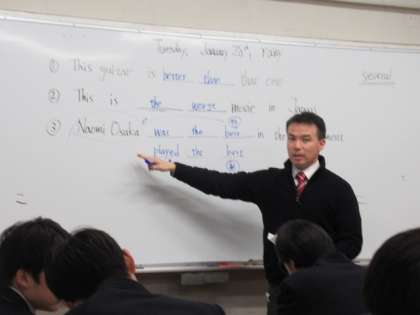 Tuesday, January 29th, Rainy
① This guitar is better than that one.
several
② This is the worst movie in Japan.
③ Naomi Osaka was the best in the
played the best